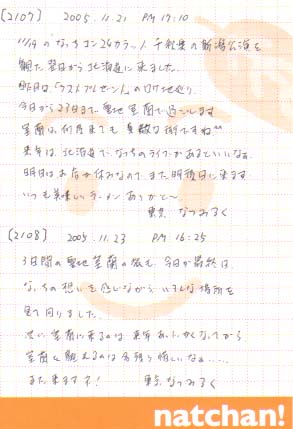 [2107] 2005.11.21 PM 19:10
11/19 のなっちコン24カラット 千秋楽の新潟公演を
観た翌日から北海道に来ました。
昨日は「ラストプレゼント」のロケ地巡り、
今日から23日まで聖地室蘭で過ごします
室蘭は何度来ても素敵な街ですね^^
来年は、北海道でなっちのライブがあるといいなぁ。
明日はお店が休みなので、また明後日に来ます。
いつも美味しいラーメンありがと〜
東京 なつみるく
[2108] 2005.11.23 PM 16:25
3日間の聖地室蘭の旅も、今日が最終日。
なっちの想いを感じながら、いろんな場所を
見て回りました。
次に室蘭に来るのは来年あったかくなってから
室蘭と離れるのは名残り惜しいなぁ....
また来ます!
東京 なつみるく
natchan!